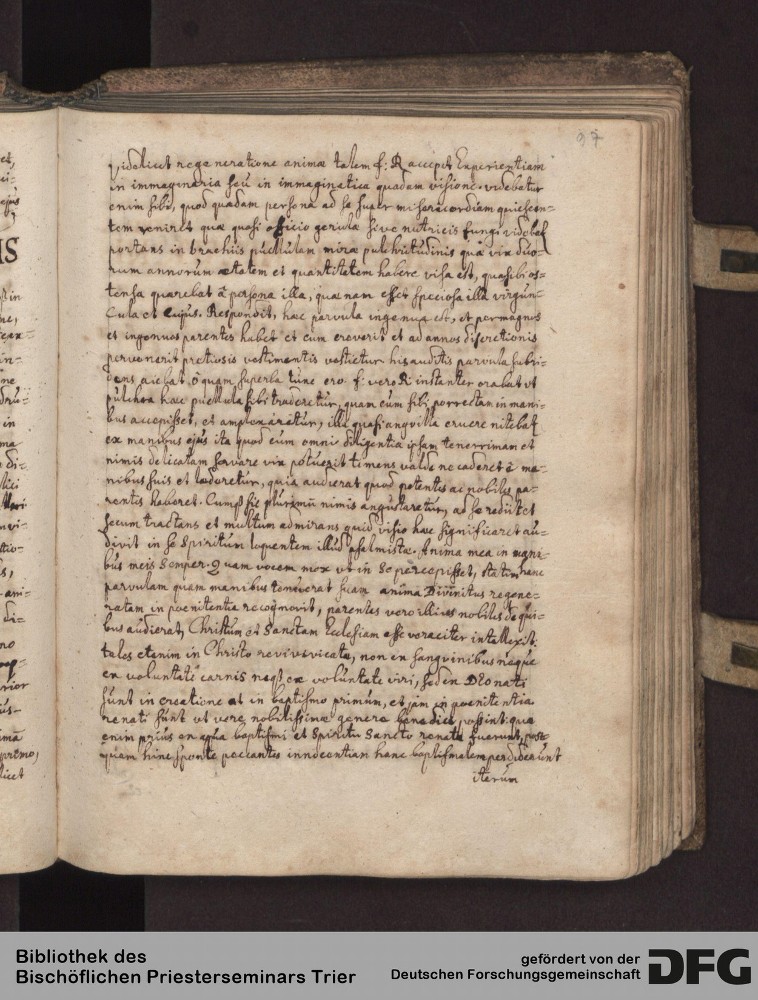 97
Videlicet regeneratione animæ talem f: R accepit Experientiam
in immaginaria seu in immaginatica quadam visione. videbatur
enim sibi, quod quædam persona ad se super misericordiam quiescen-
tem veniret quæ quasi officio gerulæ sive nutricis fungi videbat
portans in brachiis puellulam miræ pulchritudinis quæ vix duo-
rum annorum ætatem et quantitatem habere visa est, quasi sibi os-
tensa quærebat à persona illa, quænam esset speciosa illa virgun-
cula et cujus. Respondit, hæc parvula ingenua est, et permagnos
et ingenuos parentes habet et cum creverit et ad annos discretionis
pervenerit pretiosis vestimentis vestietur his auditis parvula subri-
dens aiebat ô quam superba tunc ero. f: vero R: instanter orabat ut
pulchra hæc puellula sibi traderetur, quam cum sibi porrectam in mani-
bus accepisset, et amplexaretur, illa quasi anguilla eruere nitebat
ex manibus ejus ita quod cum omni diligentia ipsam tenerrimam et
nimis delicatam servare vix potuerit timens valde ne caderet è ma-
nibus suis et læderetur, quia audierat quod potentes ac nobiles pa-
rentes haberet. Cumq sic plurimū nimis angustaretur, ad se rediit et
secum tractans et multum admirans quid visio hæc significaret au-
divit in se Spiritum loquentem illud psalmistæ. Anima mea in mani-
bus meis Semper. Quam vocem mox ut in se percepisset, statim hanc
parvulam quam manibus tenuerat suam animā Divinitus regene-
ratam in poenitentia recognovit, parentes vero illius nobiles de qui-
bus audierat, Christum et Sanctam Ecclesiam esse veraciter intellexit.
tales etenim in Christo revivivicatæ, non ex sanguinibus neque
ex voluntate carnis neqs ex voluntate viri, sed ex DEo nati
sunt in creatione et in baptismo primum, et jam in poenitentia
renati sunt ut vere nobilissimæ genere benedici possint. quæ
enim prius ex aqua baptismi et Spiritu Sancto renatæ fuerunt, post-
quam hinc sponte peccantes innocentiam hanc baptismalem perdiderunt
iterum
Bibliothek des
Bischöflichen Priesterseminars Trier
gefördert von der
Deutschen Forschungsgemeinschaft
DFG